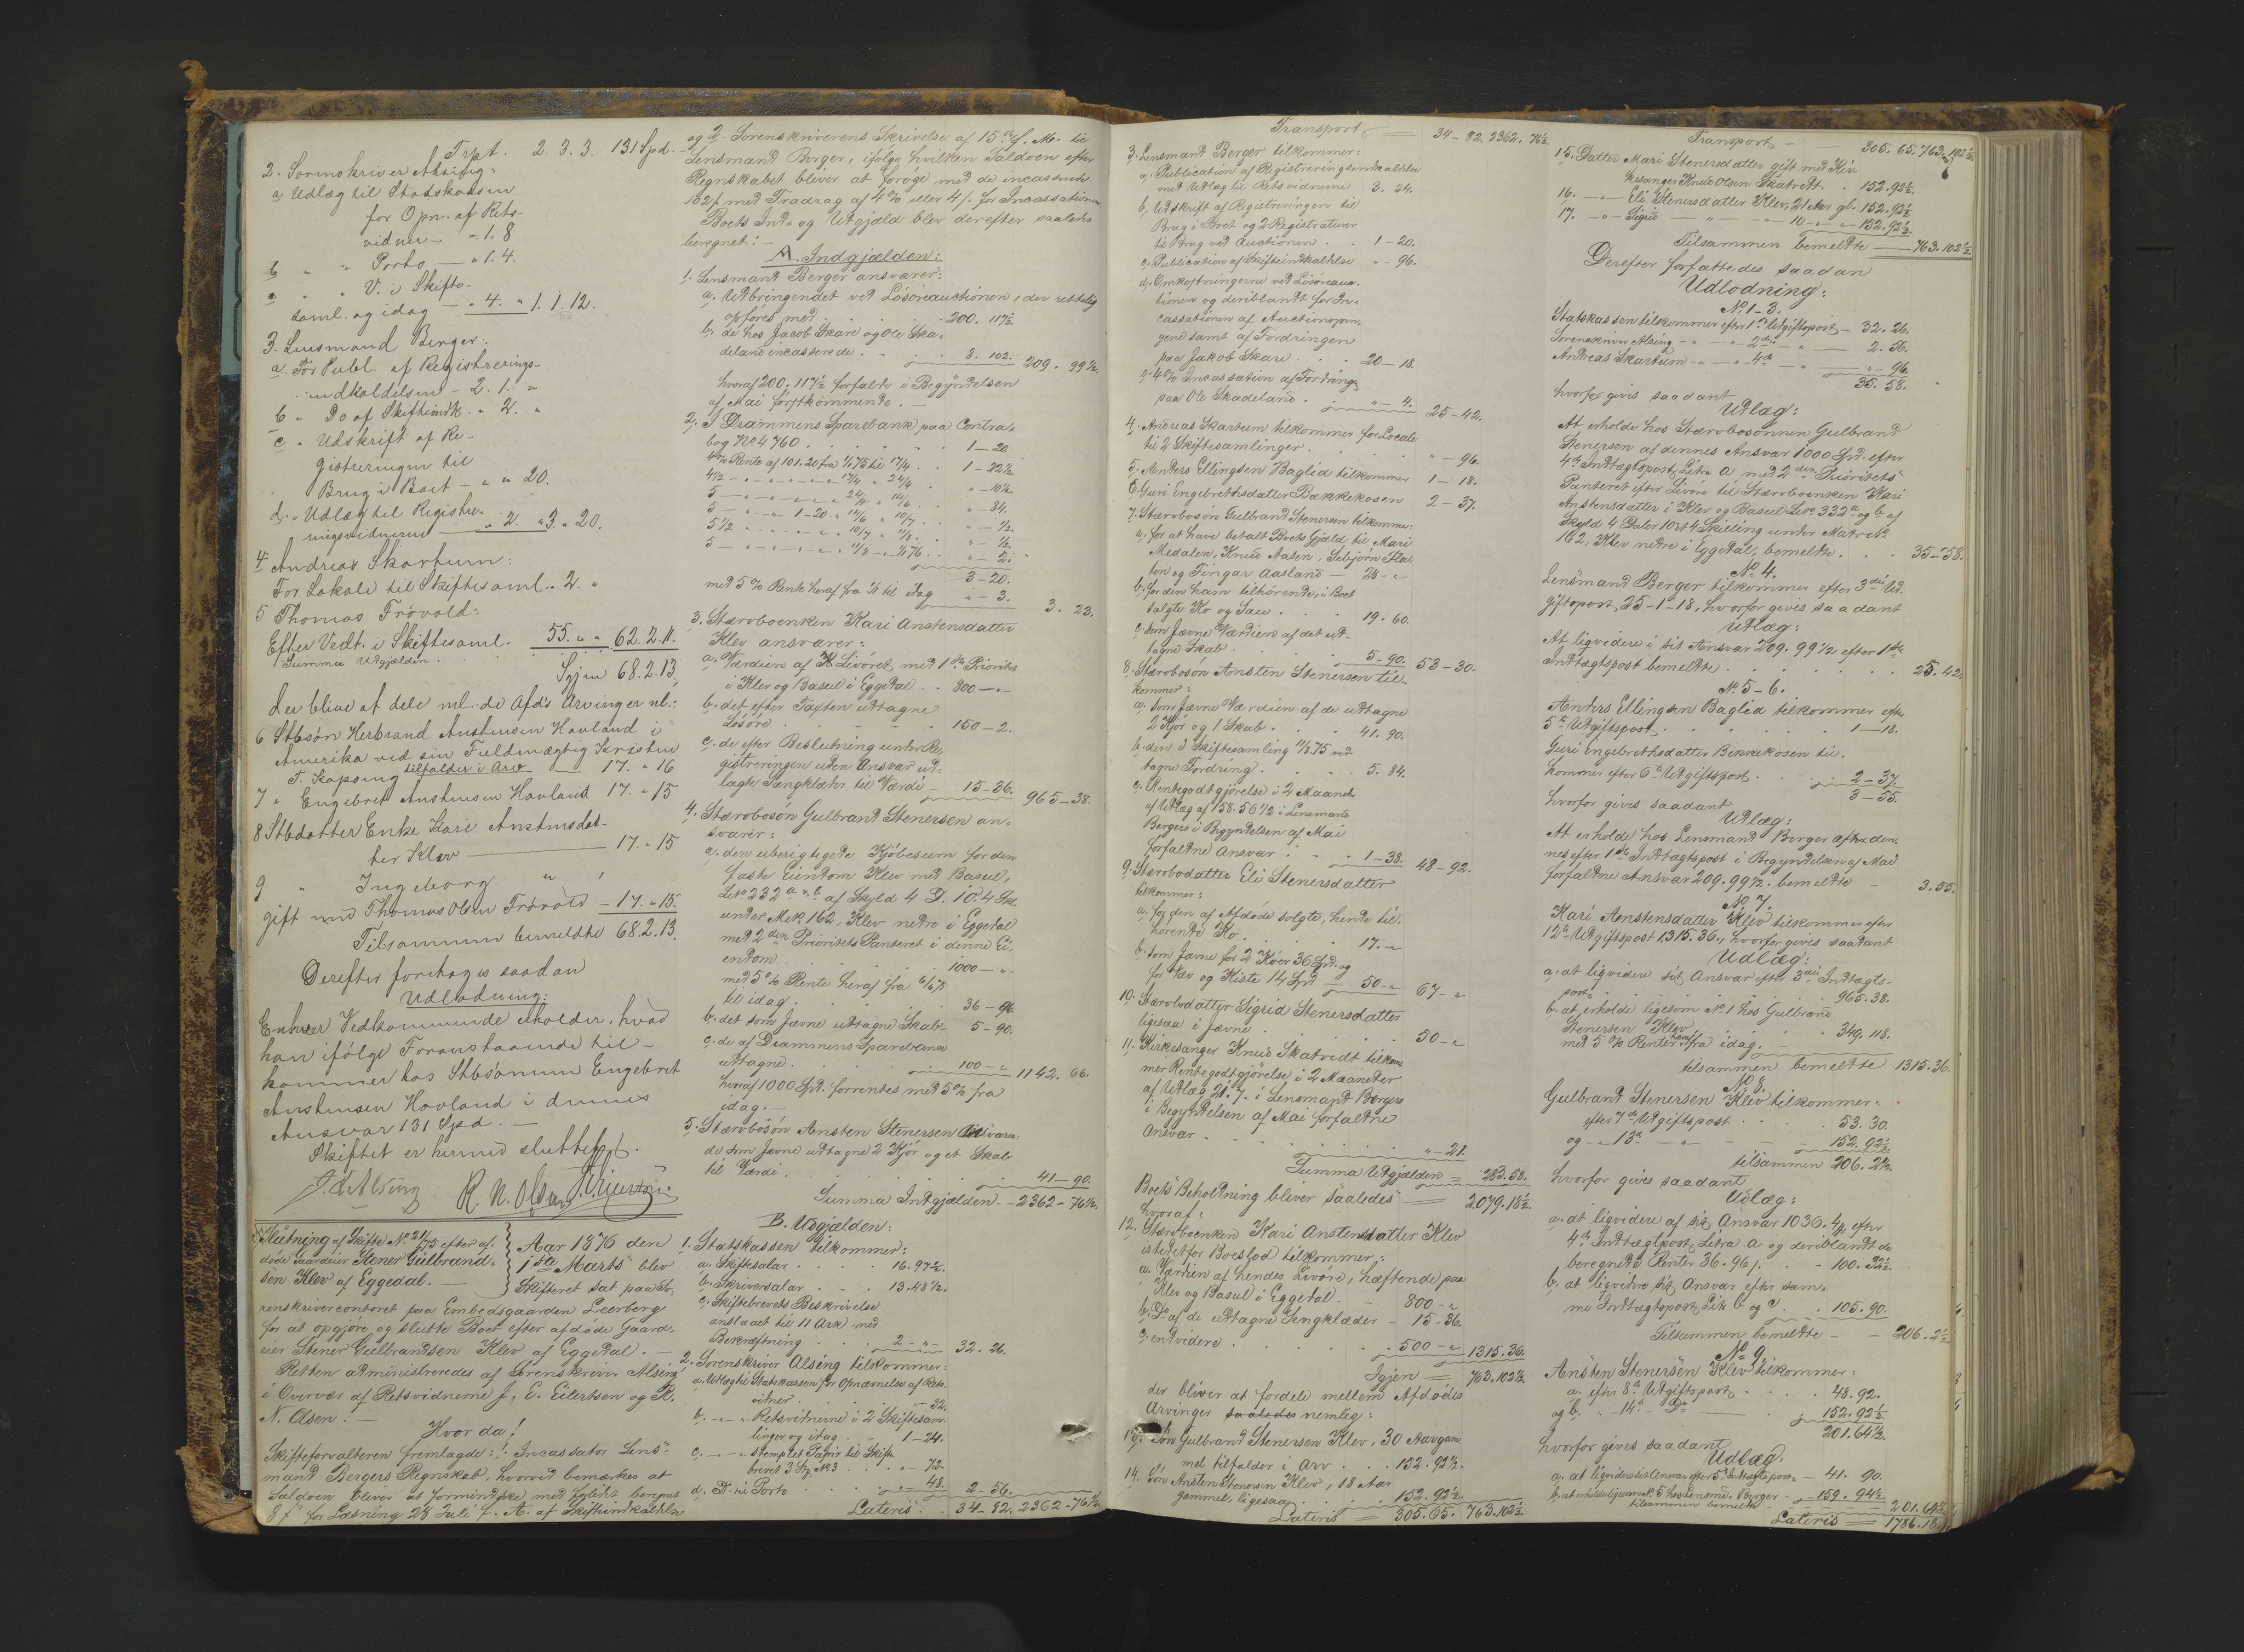 Trpt. 2. 3. 3. 131 Spd.
2. Sorenskriver Alsing:
a Udlæg til Statskassen
for Opn. af Rets-
vidner — „ 1. 8
b „ „ Porto — „ 1. 4.
c „ „ V. i Skifte-
saml. og idag — „ 4. „ 1. 1. 12.
3. Lensmand Berger:
a. For Publ. af Registrerings-
indkaldelsen – 2. 1. „
b „ Do af Skifteindk. „ 2. „
c „ Udskrift af Re-
gistreringen til
Brug i Boet – „ „ 20.
d. „ Udlæg til Registre-
ringsvidnerne — „ 2. „ 3. „ 20.
4 Andreas Skartum:
For Lokale til Skiftesaml. „ 2. „
5 Thomas Frøvold:
Efter Vedt. i Skiftesaml. 55. „ „ 62. 2. 11.
Summa Udgjælden
Igjen 68. 2. 13.
der blive at dele ml. de Afd's Arvinger nl.:
6 Stbsøn Herbrand Anstensen Hovland i
Amerika ved sin Fuldmægtig Kristen
T. Kopseng tilfalder i Arv — 17. „ 16
7 „ Engebret Anstensen Hovland 17. „ 15
8 Stbdatter Enke Kari Anstensdat-
ter Klev — 17. „ 15
9 „ Ingeborg „
gift med Thomas Olsen Frøvold – 17. „ 15.
Tilsammen bemeldte 68. 2. 13.
Derefter foretages saadan
Udlodning:
Enhver Vedkommende erholder, hvad
han ifølge Foranstaaende til-
kommer hos Stbsønnen Engebret
Anstensen Hovland i dennes
Ansvar 131 Spd. —
Skiftet er hermed sluttet.
Alsing R. N. Olsen
Slutning af Skifte No 21/75 efter af-
døde Gaardeier Stener Gulbrand-
sen Klev af Eggedal. —
Aar 1876 den
1ste Marts blev
Skifteret sat paa So-
renskrivercontoret paa Embedsgaarden Leerberg
for at opgjøre og slutte Boet efter afdøde Gaard-
eier Stener Gulbrandsen Klev af Eggedal. —
Retten administreredes af Sorenskriver Alsing
i Overvær af Retsvidnerne J. E. Eilertsen og R.
N. Olsen. —
Hvor da!
Skifteforvalteren fremlagde: 1. Incassator Lens-
mand Bergers Regnskab, hvorved bemærkes at
Saldoen bliver at formindske med feilagt beregnet
8 f for Læsning 28 Juli f. A. af Skifteindkaldelsen
og 2. Sorenskriverens Skrivelse af 15de f. M. til
Lensmand Berger, ifølge hvilken Saldoen efter
Regnskabet bliver at forøge med de incasserede
102 f med Fradrag af 4% eller 4 f. for Incassationen.
Boets Ind- og Udgjæld blev derefter saaledes
beregnet: —
A. Indgjælden:
1. Lensmand Berger ansvarer:
a. Udbringendet ved Løsøreauctionen, der rettelig
opføres med . . . 200. 117½
b. de hos Jacob Skare og Ole Ska-
deland incasserede . . . 8. 102. 209. 99½.
hvoraf 200. 117½ forfaldt i Begyndelsen
af Mai førstkommende. —
2. I Drammens Sparebank paa Contra-
bog No 4760 . . . 1 – 20
4% Rente af 101. 20 fra 1/1 75 til 17/4 . . 1 – 22½
4½ – „ „ „ „ 17/4 „ 24/4 . „ – 10½
5 – „ „ „ „ 24/4 „ 14/6 . „ – 84.
5 – „ „ 1 – 20 „ 14/6 „ 10/7 . „ – ½.
5½ „ „ „ „ 10/7 „ 11/8 . . „ – ½.
5 – „ „ „ „ 11/8 – 1/1 76 . . „ – 2.
3 – 20.
med 5% Rente heraf fra 1/1 til idag „ – 3. 3. 23.
3. Stærvboenken Kari Anstensdatter
Klev ansvarer:
a. Værdien af K Livøret med 1ste Prioritet
i Klev og Baseul i Eggedal . . 300 – „
b. det efter Taxten udtagne
Løsøre . . . 150 – 2.
c. de efter Beslutning under Re-
gistreringen uden Ansvar ud-
lagte Sengklæder til Værdi – 15 – 36. 965 – 38.
4. Stærvbosøn Gulbrand Stenersen an-
svarer:
a. den uberigtigede Kjøbesum for den
faste Eiendom Klev med Baseul,
Lno 232 a & b af Skyld 4 D. 10. 4 Sk.
under Mtk. 162, Klev nedre i Eggedal
med 2den Prioritets Panteret i denne Ei-
endom . . . 1000 – „
med 5% Rente heraf fra 6/6 75
til idag . . . 36 – 96.
b. det som Jævne udtagne Skab – 5 – 90.
c. de af Drammens Sparebank
udtagne . . . 100 – „ 1142. 66.
hvoraf 1000 Spd. forrentes med 5% fra
idag. —
5. Stærvbosøn Ansten Stenersen Ansvarer
de som Jævne udtagne 2 Kjør og et Skab
til Værdi . . . 41 – 90.
Summa Indgjælden – 2362 – 76½.
B. Udgjælden:
1. Statskassen tilkommer:
a. Skiftesalar . . . 16. 97½.
b. Skriversalar . . . 13. 48½.
c. Skiftebrevets Beskrivelse
anslaaet til 11 Ark med
Bekræftning . . . 2 – „ 32. 26.
2. Sorenskriver Alsing tilkommer:
a. Udlæg til Statskassen for Opnævnelse af Rets-
vidner . . . „ – 32.
b. – „ – Retsvidnerne i 2 Skiftesam-
linger og idag . . 1 – 24.
c. – „ – stemplet Papir til Skifte-
brevet 3 Sp. No 3 . . . „ – 72.
d. D. til Porto . . . „ – 48. 2 – 56.
Lateris . . 34 – 82. 2362 – 76½
Transport = 34 – 82. 2362. 76½
3. Lensmand Berger tilkommer:
a. Publication af Registreringsindkaldelsen
med Udlæg til Retsvidnerne 3. 24.
b. Udskrift af Registreringen til
Brug i Boet og 2 Registrationer
til Brug ved Auctionen . . 1 – 20.
c. Publication af Skifteindkaldelse „ – 96.
d. Omkostningerne ved Løsøreauc-
tionen og deriblandt for In-
cassationen af Auctionspen-
gene samt af Fordringen
paa Jakob Skare . . . 20 – 18.
e. 4% Incassation af Fordring
paa Ole Skadeland . . . „ – 4. 25 – 42.
4. Andreas Skartum tilkommer for Locale
til 2 Skiftesamlinger . . . „ – 96.
5. Anders Ellingsen Baglid tilkommer 1 – 18.
6. Guri Engebrethsdatter Bækkekosen 2 – 37.
7. Stærvbosøn Gulbrand Stenersen tilkommer:
a. for at have betalt Boets Gjæld til Mari
Medalen, Knud Aasen, Sebjørn Fla-
ten og Fingar Aasland – 28 – „
b. for den ham tilhørende, i Boet
solgte Ko og Sau . . . 19. 60.
c. som Jævne Værdien af det ud-
tagne Skab . . . 5 – 90. 53 – 30.
8. Stærvbosøn Ansten Stenersen til-
kommer:
a. som Jævne Værdien af de udtagne
2 Kjør og 1 Skab . . . 41. 90.
b. den i Skiftesamling 11/8 75 ved-
tagne Fordring . . . 5. 84.
c. Rentegodtgjørelse i 2 Maaneder
af Udlæg af 158. 56½ i Lensmand
Bergers i Begyndelsen af Mai
forfaldne Ansvar . . . 1 – 38. 48 – 92.
9. Stærvbodatter Eli Stenersdatter
tilkommer:
a. for den af Afdøde solgte, hende til-
hørende Ko . . . 17. „
b. som Jævne for 2 Køer 36 Spd. og
for Væv og Kiste 14 Spd – 50 – „ 67 – „
10. Stærvbodatter Sigrid Stenersdatter
ligesaa i Jævne . . . 50 – „
11. Kirkesanger Knud Skatvedt tilkom-
mer Rentegodtgjørelse i 2 Maaneder
af Udlæg 21. 7. i Lensmand Bergers
i Begyndelsen af Mai forfaldne
Ansvar . . . „ – 21.
Summa Udgjælden = 283. 58.
Boets Beholdning bliver saaledes = 2079. 18½.
hvoraf:
12. Stærvboenken Kari Anstensdatter Klev
istedetfor Boeslod tilkommer:
a. Værdien af hendes Livøre, hæftende paa
Klev og Baseul i Eggedal – 800 – „
b. Do af de udtagne Sengklæder – 15 – 36.
c. endvidere . . . 500 – „ 1315. 36.
Igjen = 763. 102½.
der bliver at fordele mellem Afdødes
Arvinger saaledes nemlig:
13. Søn Gulbrand Stenersen Klev, 30 Aar gam-
mel tilfalder i Arv . . . 152. 92½.
14. Søn Ansten Stenersen Klev, 18 Aar
gammel, ligesaa . . . 152. 92½.
Lateris = 305. 65. 763. 102½.
Transport – 305. 65. 763. 102½.
15. Datter Mari Stenersdatter gift med Kir-
kesanger Knud Olsen Skatvedt . . 152. 92½.
16. – „ – Eli Stenersdatter Klev, 21 Aar gl. 152. 92½
17. – „ – Sigrid — „ — „ – 10 – „ – „ 152. 92½.
Tilsammen bemeldte — 763. 102½
Derefter forfattedes saadan
Udlodning:
No 1 – 3.
Statskassen tilkommer efter 1ste Udgiftspost – 32. 26.
Sorenskriver Alsing – „ – „ – 2den – „ — 2. 56.
Andreas Skartum – „ – „ 4de – „ — „ – 96.
35. 58.
hvorfor gives saadant
Udlæg:
At erholde hos Stærvbosønnen Gulbrand
Stenersen af dennes Ansvar 1000 Spd. efter
4de Indtægtspost Litra a med 2den Prioritets
Panteret efter Livøre til Stærvboenken Kari
Anstensdatter i Klev og Baseul Lno 332 a og b af
Skyld 4 Daler 10 rt 4 Skilling under Matr. No
162, Klev nedre i Eggedal, bemeldte . . . 35 – 58.
No 4.
Lensmand Berger tilkommer efter 3die Ud-
giftspost, 25 – 1 – 18, hvorfor gives saadant
Udlæg:
At liqvidere i sit Ansvar 209. 99½ efter 1ste
Indtægtspost bemeldte . . . 25. 42.
No 5 – 6.
Anders Ellingsen Baglid tilkommer efter
5te Udgiftspost . . . 1 – 18.
Guri Engebrethsdatter Bækkekosen til-
kommer efter 6te Udgiftspost . . . 2 – 37.
3 – 55.
hvorfor gives saadant
Udlæg:
At erholde hos Lensmand Berger efter den-
nes efter 1ste Indtægtspost i Begyndelsen af Mai
forfaldne Ansvar 209. 99½. bemeldte – 3. 55.
No 7.
Kari Anstensdatter Klev tilkommer efter
12te Udgiftspost 1315. 36., hvorfor gives saadant
Udlæg:
a. at liqvidere sit Ansvar efter 3die Indtægts-
post . . . 965. 38.
b. at erholde ligesom No 1 hos Gulbrand
Stenersen Klev . . . 349. 118.
med 5% Renter heraf fra idag.
tilsammen bemeldte 1315. 36.
No 8.
Gulbrand Stenersen Klev tilkommer:
efter 7de Udgiftspost . . . 53. 30.
og – „ 13de – „ – 152. 92½
tilsammen 206. 2½.
hvorfor gives saadant
Udlæg:
a. at liqvidere af sit Ansvar 1036. 96. efter
4de Indtægtspost Litra a og deriblandt de
beregnede Renter 36. 96 f. . – 100. 32½.
b. at liqvidere sit Ansvar efter sam-
me Indtægtspost Litr. b og c . . 105. 90.
Tilsammen bemeldte – – 206. 2½
No 9.
Ansten Stenersen Klev tilkommer:
a. efter 8de Udgiftspost . . . 48. 92.
og b. – „ 14de – D — 152. 92½
201. 64½.
hvorfor gives saadant
Udlæg:
a. at liqvidere sit Ansvar efter 5te Indtægtspost – 41. 90.
b. at erholde ligesom No 5 hos Lensmd. Berger – 159. 94½.
tilsammen bemeldte 201. 64½
Lateris = 1786. 18